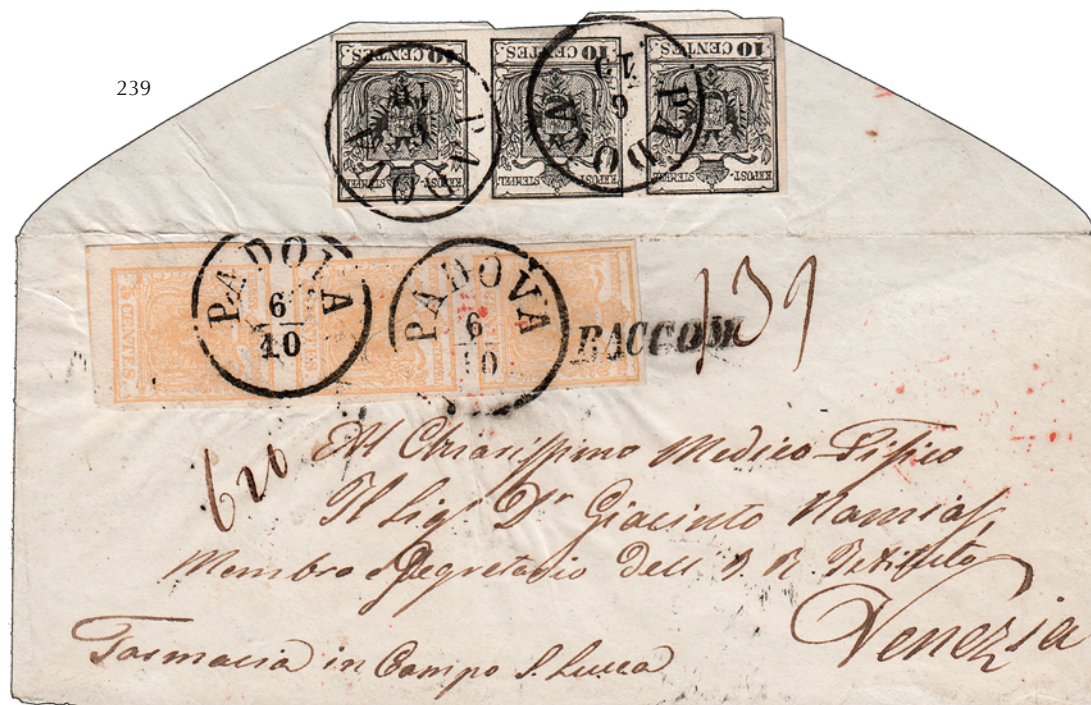 239
10 CENTES. 10 CENTES. 10 CENTES.
KKPOST-STEMPEL KKPOST-STEMPEL KKPOST-STEMPEL
PADOVA
6
10
PADOVA
6
10
5 CENTES 5 CENTES
PADOVA
6
10
PADOVA
6
10
RACCOM
139
620
Al Chiarissimo Medico-Fisico
Il Sigr Dr Giacinto Namias,
Membro e Segretario dell' I. R. Istituto
Venezia
Farmacia in Campo S. Lucca